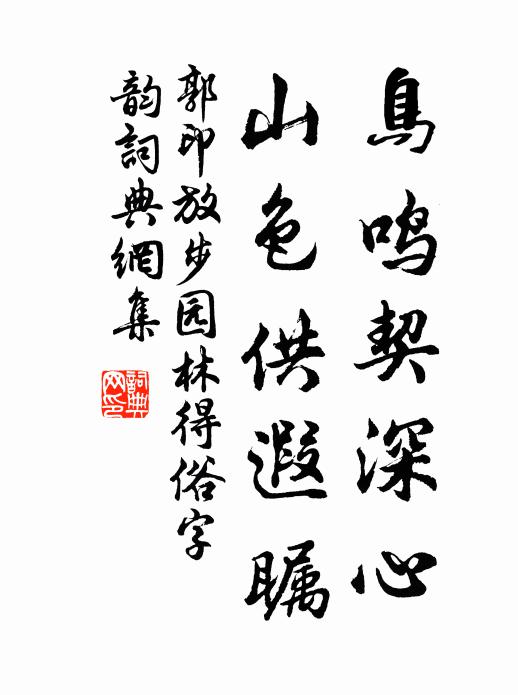 鸟鸣契深心
山色供遐瞩
郭印放步园林得俗字
韵词典網集
詞典
网印